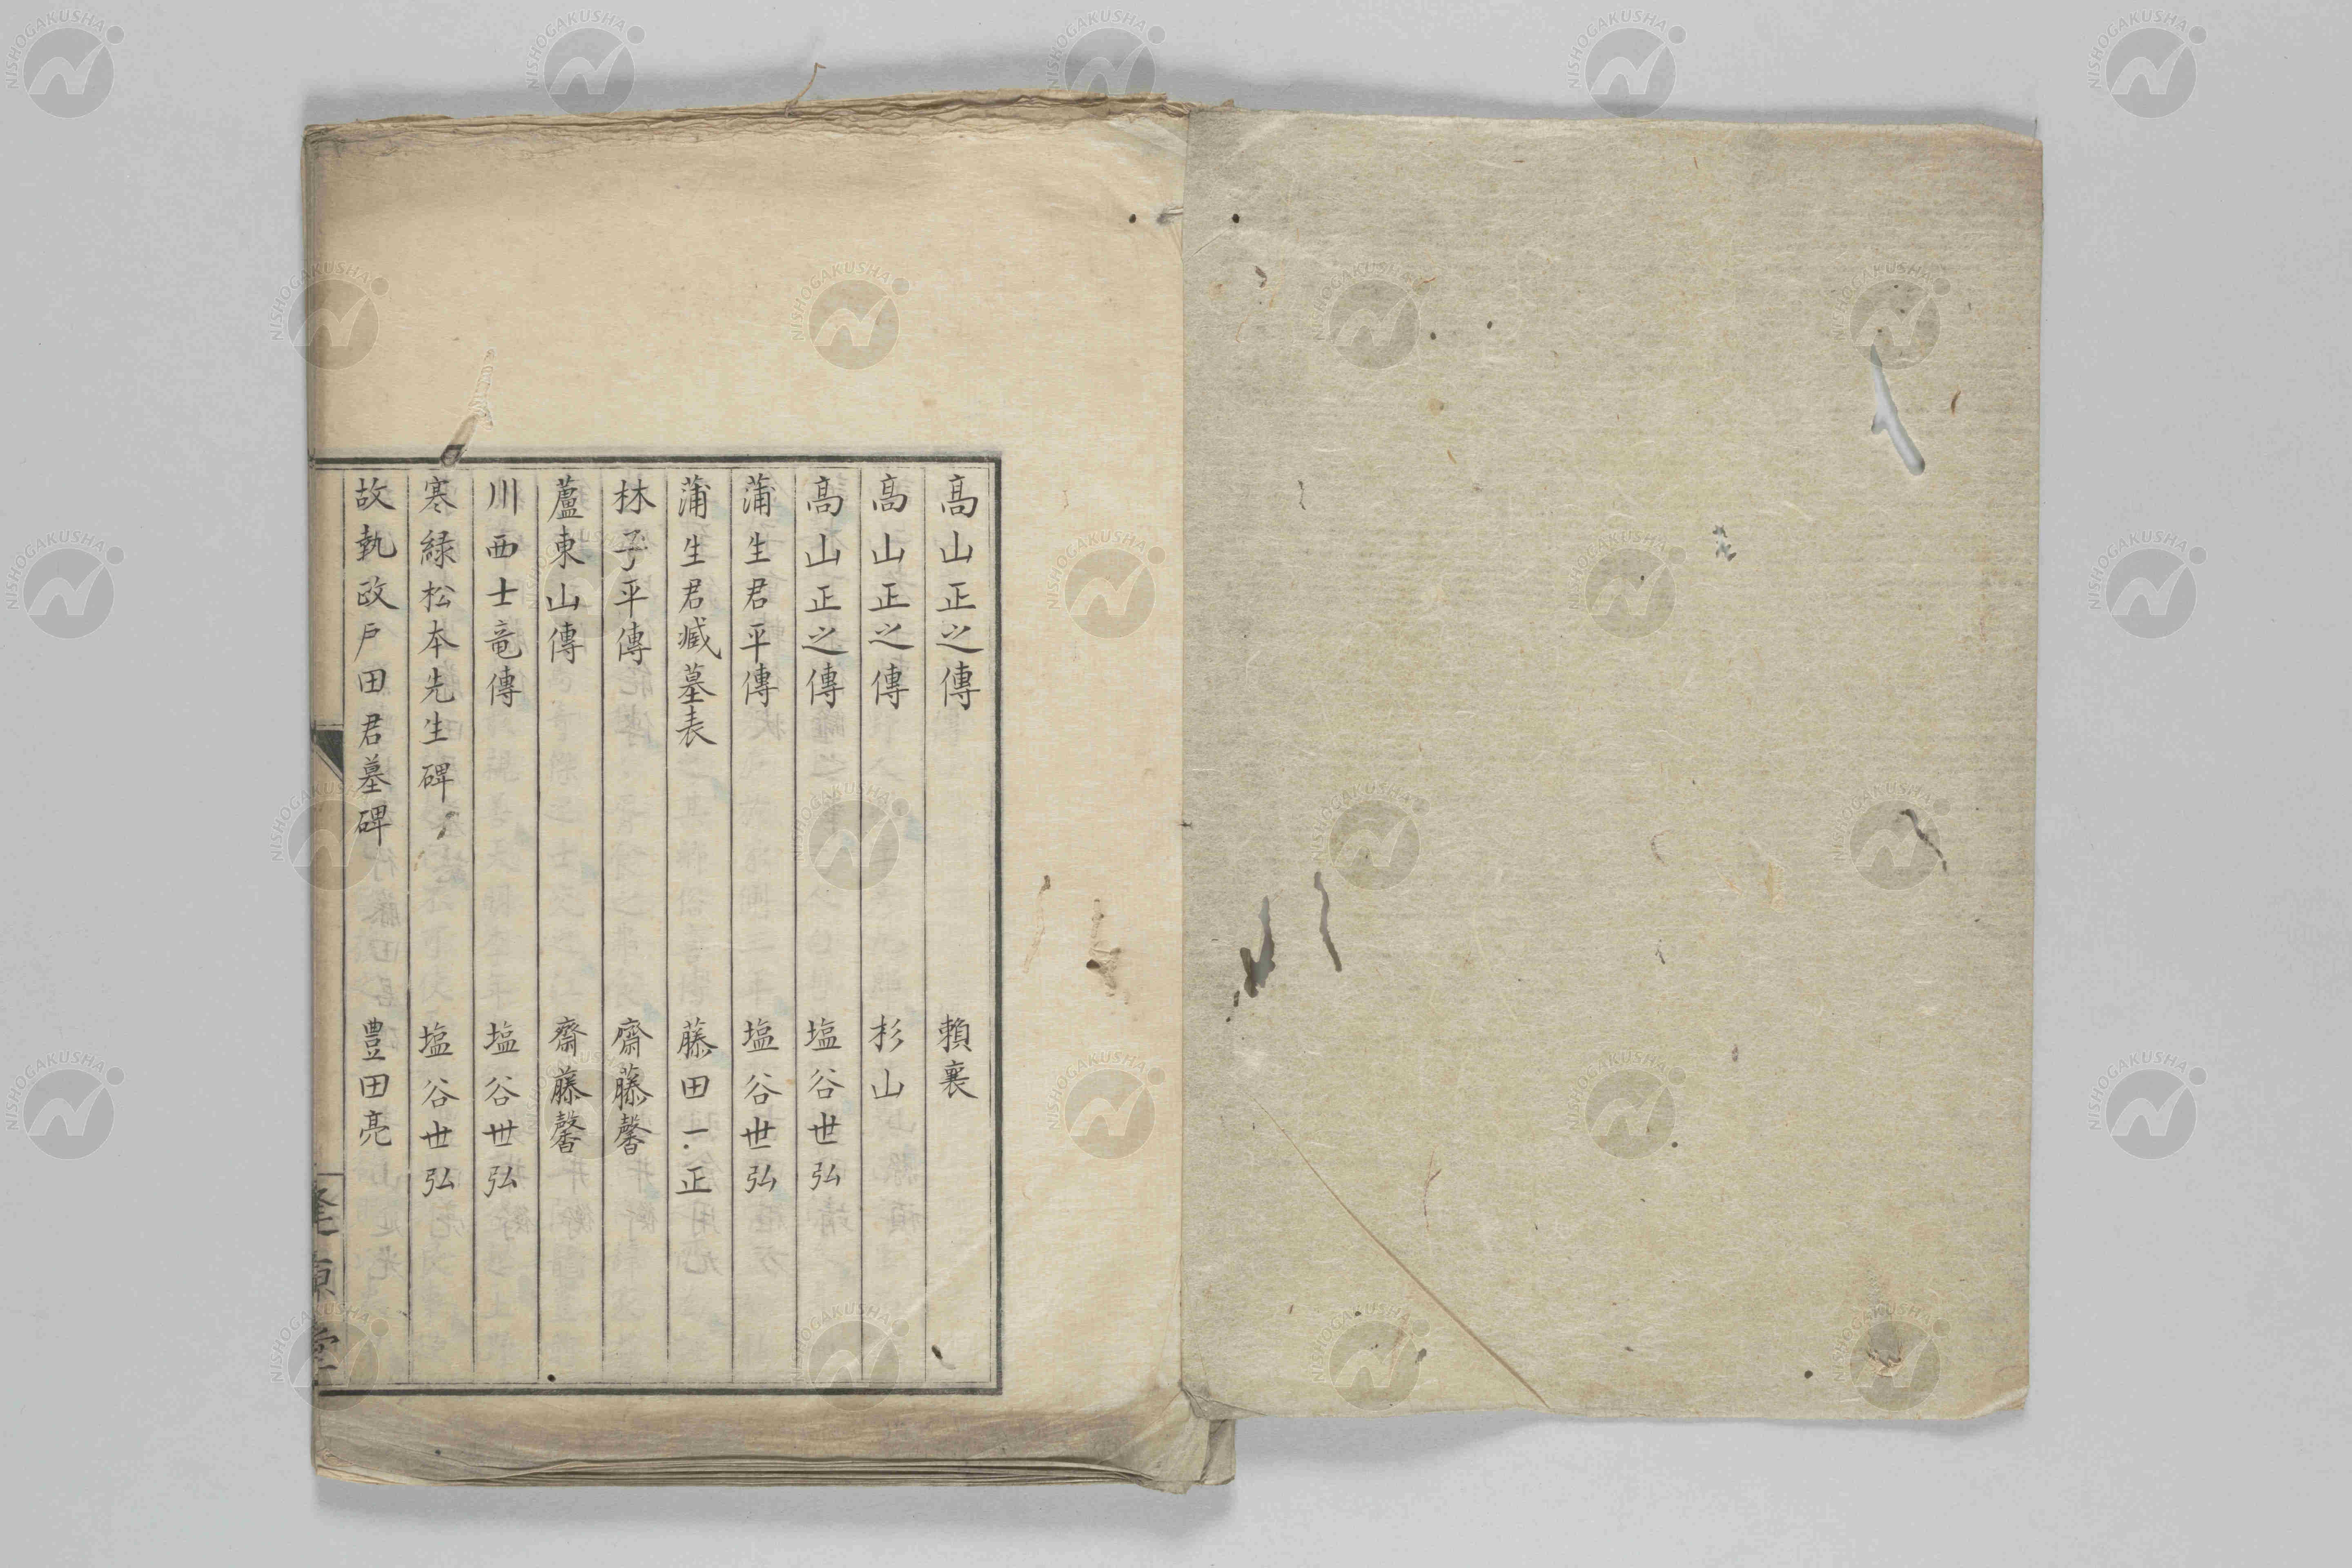 高山正之傳 賴襄
高山正之傳 杉山
高山正之傳 塩谷世弘
蒲生君平傳 塩谷世弘
蒲生君臧墓表 藤田一正
林子平傳 齋藤馨
蘆東山傳 齋藤馨
川西士竜傳 塩谷世弘
寒緑松本先生碑 塩谷世弘
故執政戸田君墓碑 豊田亮
NISHOGAKUSHA